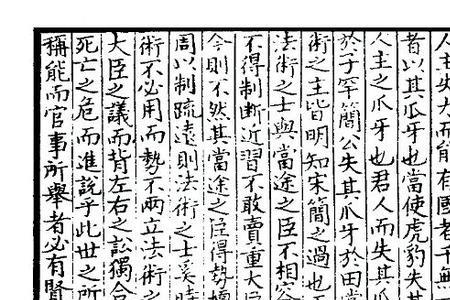 人主失力而能有國者千無
者以其爪牙也當使虎豹失其
人主之爪牙也君人而失其爪
於子罕簡公失其爪牙於田常
術之主皆明知宋簡之過也
法術之士與當途之臣不相容
不得制斷近習不敢賣重大臣
今則不然其當途之臣得勢擅
周以制疏遠則法術之士奚時
術不必用而勢不兩立法術之
大臣之議而背左右之訟獨合
死亡之危而進說乎此世之所
稱能而官事所舉者必有賢